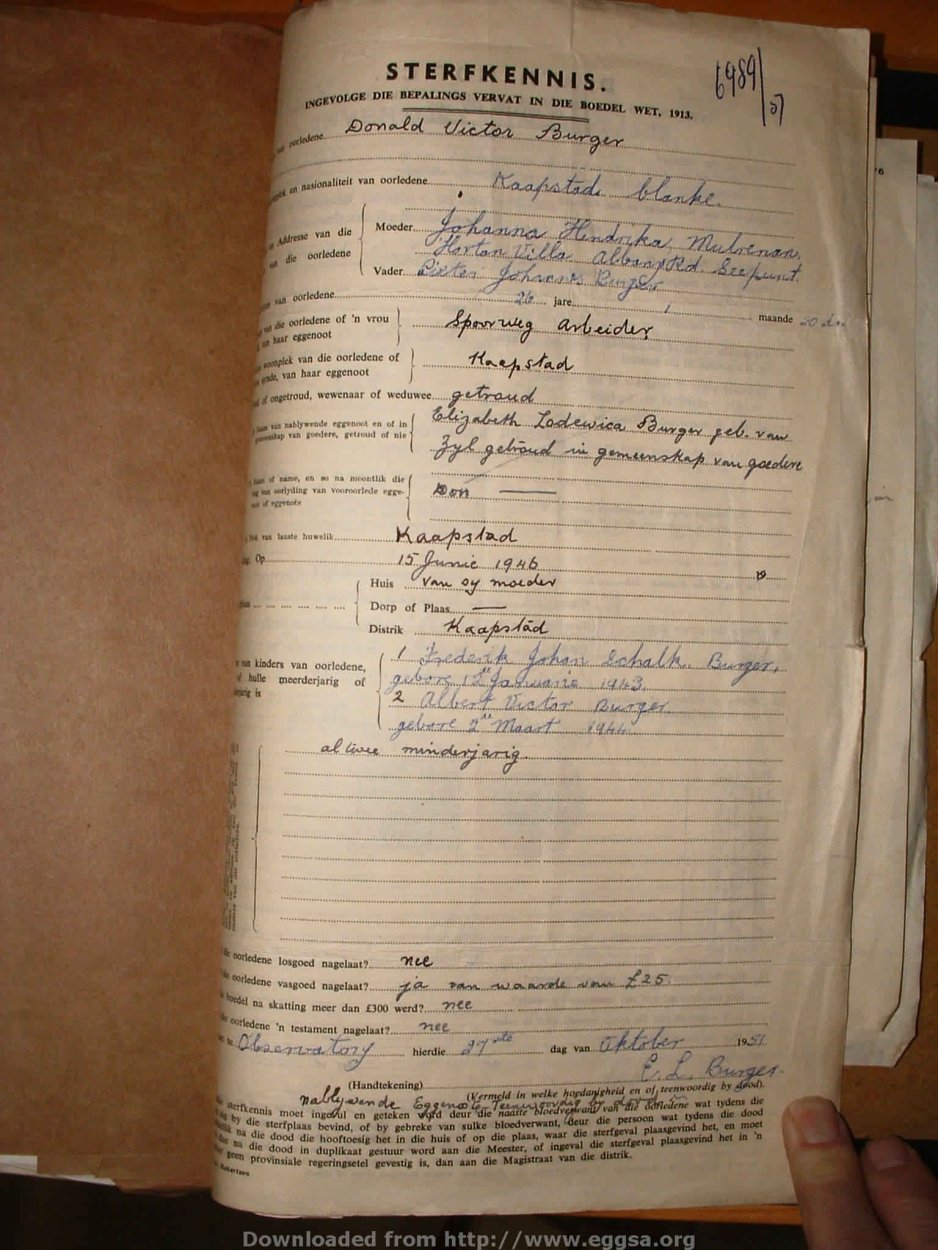 STERFKENNIS.
6989/51
INGEVOLGE DIE BEPALINGS VERVAT IN DIE BOEDEL WET, 1913.
oorledene Donald Victor Burger
en nasionaliteit van oorledene Kaapstad blanke.
Addresse van die
die oorledene
Moeder Johanna Hendrika
Horton Villa Albany Rd Seepunt
Vader Pieter Johannes Burger
van oorledene 26 jare, 1 maande 20
van die oorledene of 'n vrou
van haar eggenoot
Spoorweg Arbeider
woonplek van die oorledene of
van haar eggenoot
Kaapstad
of ongetroud, wewenaar of weduwee getroud
Naam van nablywende eggenoot en of in
gemeenskap van goedere, getroud of nie
Elizabeth Lodewica Burger geb. van
Zyl getroud in gemeenskap van goedere
of name, en so na moontlik die
dag van oorlyding van vooroorlede egge-
noot of eggenote
Plek van laaste huwelik Kaapstad
Op 15 Junie 1946
Huis van sy moeder
Dorp of Plaas —
Distrik Kaapstad
van kinders van oorledene,
of hulle meerderjarig of
is
1 Frederik Johan Schalk Burger,
gebore Januarie 1943.
2 Albert Victor Burger
gebore 2de Maart 1944
altwee minderjarig.
die oorledene losgoed nagelaat? nee
oorledene vasgoed nagelaat? ja van waarde van £25.
boedel na skatting meer dan £300 werd? nee
die oorledene 'n testament nagelaat? nee
te Observatory hierdie 27ste dag van Oktober 1951
(Handtekening) E. L. Burger.
(Vermeld in welke hoedanigheid en of teenwoordig by dood).
Nablywende Eggenote Teenwoordig by dood
sterfkennis moet ingevul en geteken word deur die naaste bloedverwant van die oorledene wat tydens die
by die sterfplaas bevind, of by gebreke van sulke bloedverwant, deur die persoon wat tydens die dood
na die dood die hooftoesig het in die huis of op die plaas, waar die sterfgeval plaasgevind het, en moet
na die dood in duplikaat gestuur word aan die Meester, of ingeval die sterfgeval plaasgevind het in 'n
geen provinsiale regeringsetel gevestig is, dan aan die Magistraat van die distrik.
Downloaded from http://www.eggsa.org